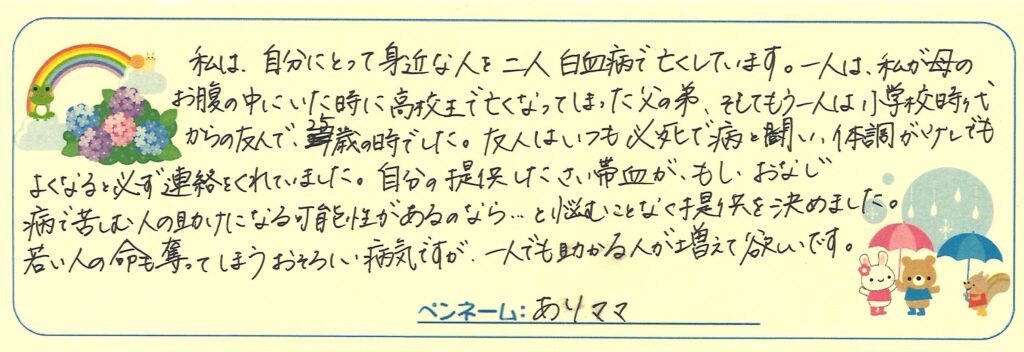 私は、自分にとって身近な人を二人白血病で亡くしています。一人は、私が母の
お腹の中にいた時に高校生で亡くなってしまった父の弟、そしてもう一人は小学校時代
からの友人で、25歳の時でした。友人はいつも必死で病と闘い、体調が少しでも
よくなると必ず連絡をくれていました。自分の提供したさい帯血が、もし、おなじ
病で苦しむ人の助けになる可能性があるのなら…と悩むことなく提供を決めました。
若い人の命も奪ってしまうおそろしい病気ですが、一人でも助かる人が増えて欲しいです。
ペンネーム：ありママ